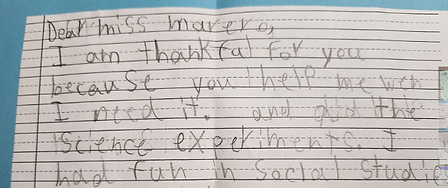 Dear miss marero,
I am thankful for you
because you help me wen
I need it. and the
science experiments. I
had fun in Social Studie